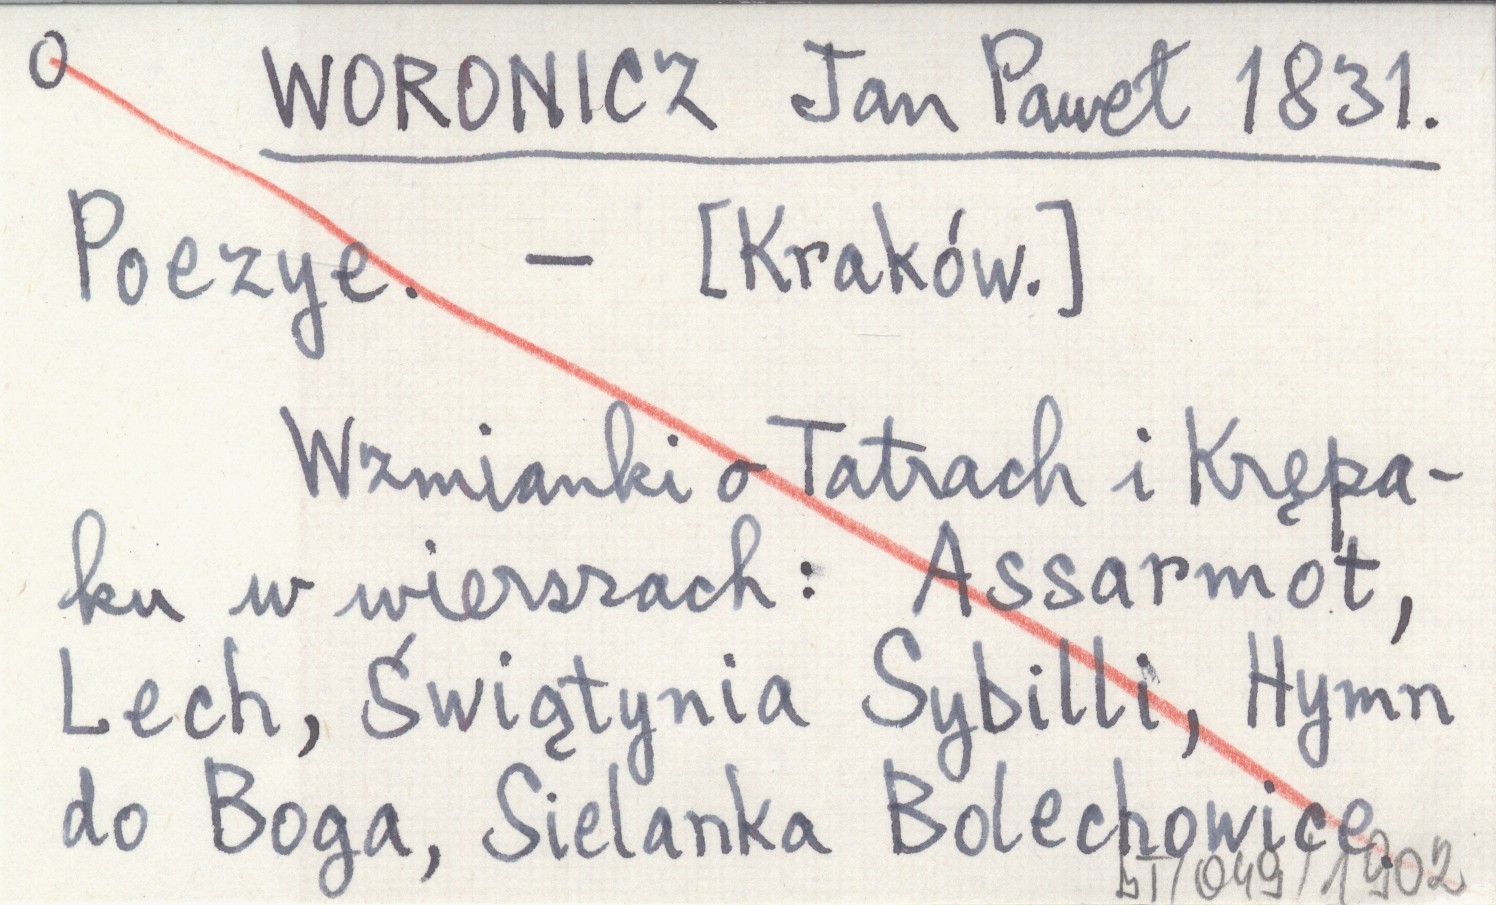 O WORONICZ Jan Paweł 1831.
Poezye. – [Kraków.]
Wzmianki o Tatrach i Krępa-
ku w wierszach: Assarmot,
Lech, Świątynia Sybilli, Hymn
do Boga, Sielanka Bolechowice.
bT/049/1902